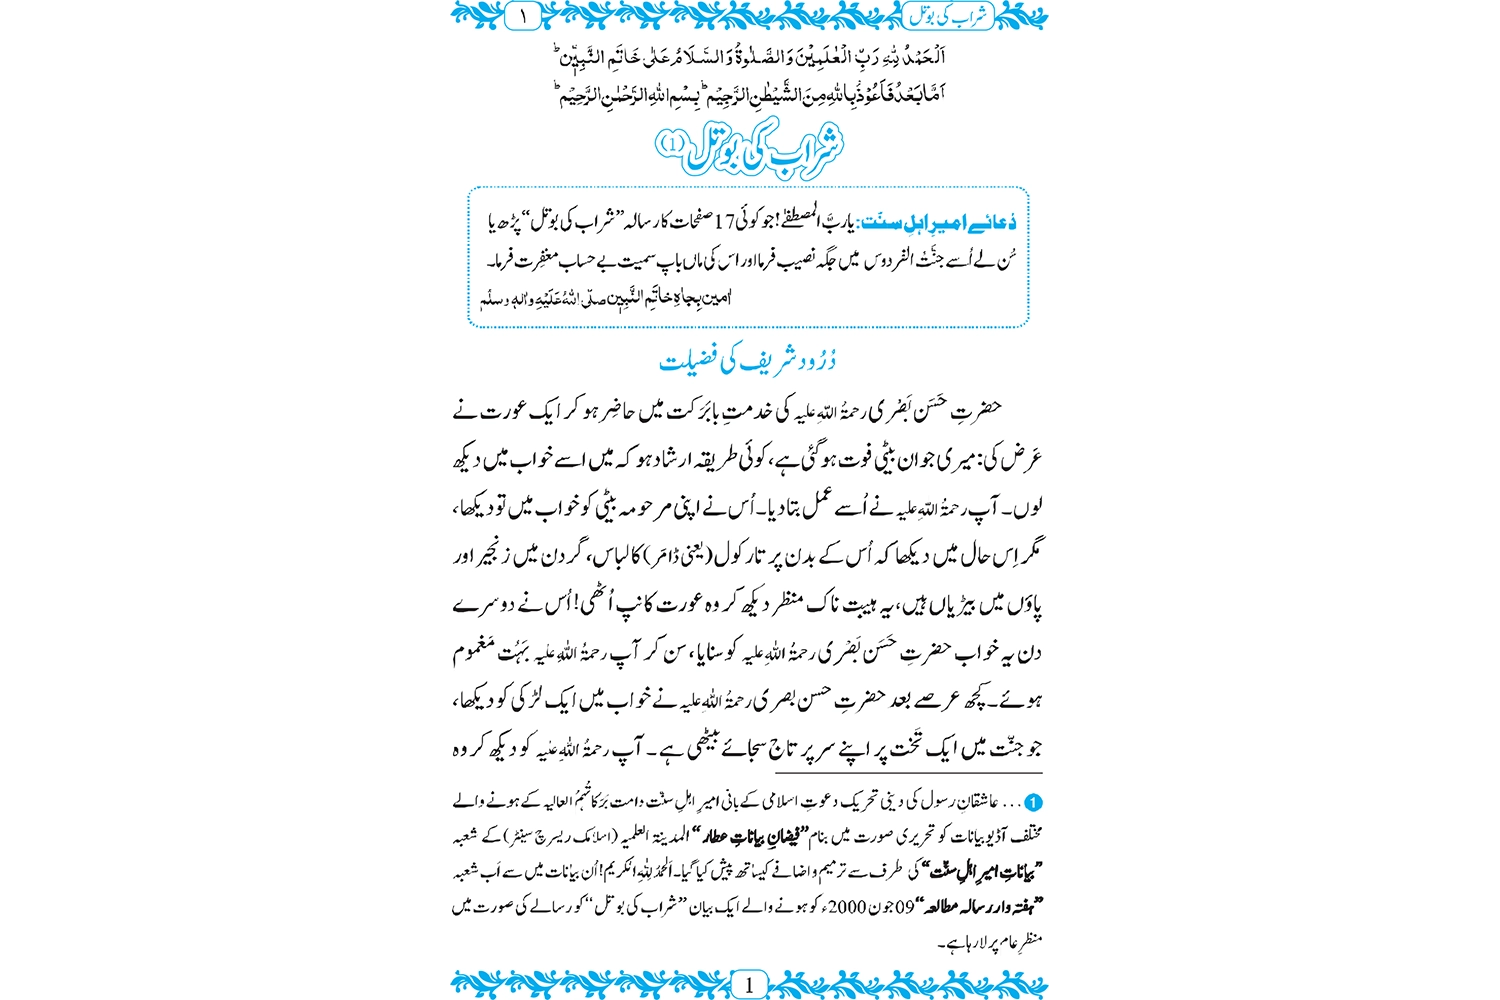 شراب کی بوتل
۱
اَلْحَمْدُ لِلّٰہِ رَبِّ الْعٰلَمِیْنَ وَالصَّلٰوۃُ وَالسَّلَامُ عَلٰی خَاتَمِ النَّبِیّٖن ؕ
اَمَّا بَعْدُ فَاَعُوْذُ بِاللہِ مِنَ الشَّیْطٰنِ الرَّجِیْم ؕ بِسْمِ اللہِ الرَّحْمٰنِ الرَّحِیْم ؕ
شراب کی بوتل (1)
دُعائے امیرِ اہلِ سنّت: یا ربَّ المصطفےٰ! جو کوئی 17 صفحات کا رسالہ ”شراب کی بوتل“ پڑھ یا
سُن لے اُسے جنّتُ الفردوس میں جگہ نصیب فرما اور اس کی ماں باپ سمیت بے حساب مغفِرت فرما۔
اٰمین بِجاہِ خاتَمِ النَّبِیّٖن صلّی اللہُ عَلَیْہِ واٰلہٖ وسلَّم
دُرُود شریف کی فضیلت
حضرتِ حَسَن بَصْری رحمۃُ اللہِ علیہ کی خدمتِ بابَرَکت میں حاضِر ہو کر ایک عورت نے
عَرض کی: میری جوان بیٹی فوت ہوگئی ہے، کوئی طریقہ ارشاد ہو کہ میں اسے خواب میں دیکھ
لوں۔ آپ رحمۃُ اللہِ علیہ نے اُسے عمل بتا دیا۔ اُس نے اپنی مرحومہ بیٹی کو خواب میں تو دیکھا،
مگر اِس حال میں دیکھا کہ اُس کے بدن پر تارکول (یعنی ڈامَر) کا لباس، گردن میں زنجیر اور
پاؤں میں بیڑیاں ہیں، یہ ہیبت ناک منظر دیکھ کر وہ عورت کانپ اُٹھی! اُس نے دوسرے
دن یہ خواب حضرتِ حَسَن بَصْری رحمۃُ اللہِ علیہ کو سنایا، سن کر آپ رحمۃُ اللہِ علیہ بَہُت مَغموم
ہوئے۔ کچھ عرصے بعد حضرتِ حسن بصری رحمۃُ اللہِ علیہ نے خواب میں ایک لڑکی کو دیکھا،
جو جنّت میں ایک تَخت پر اپنے سر پر تاج سجائے بیٹھی ہے۔ آپ رحمۃُ اللہِ علیہ کو دیکھ کر وہ
1 ... عاشقانِ رسول کی دینی تحریک دعوتِ اسلامی کے بانی امیرِ اہلِ سنّت دامت بَرَکاتُہُمُ العالیہ کے ہونے والے
مختلف آڈیو بیانات کو تحریری صورت میں بنام ”فیضانِ بیاناتِ عطار“ المدینۃ العلمیہ (اسلامک ریسرچ سینٹر) کے شعبہ
”بیاناتِ امیرِ اہلِ سنّت“ کی طرف سے ترمیم و اضافے کیساتھ پیش کیا گیا۔ اَلحمدُ لِلّٰہِ الکریم! اُن بیانات میں سے اَب شعبہ
”ہفتہ وار رسالہ مطالعہ“ 09 جون 2000ء کو ہونے والے ایک بیان ”شراب کی بوتل“ کو رسالے کی صورت میں
منظرِ عام پر لا رہا ہے۔
1